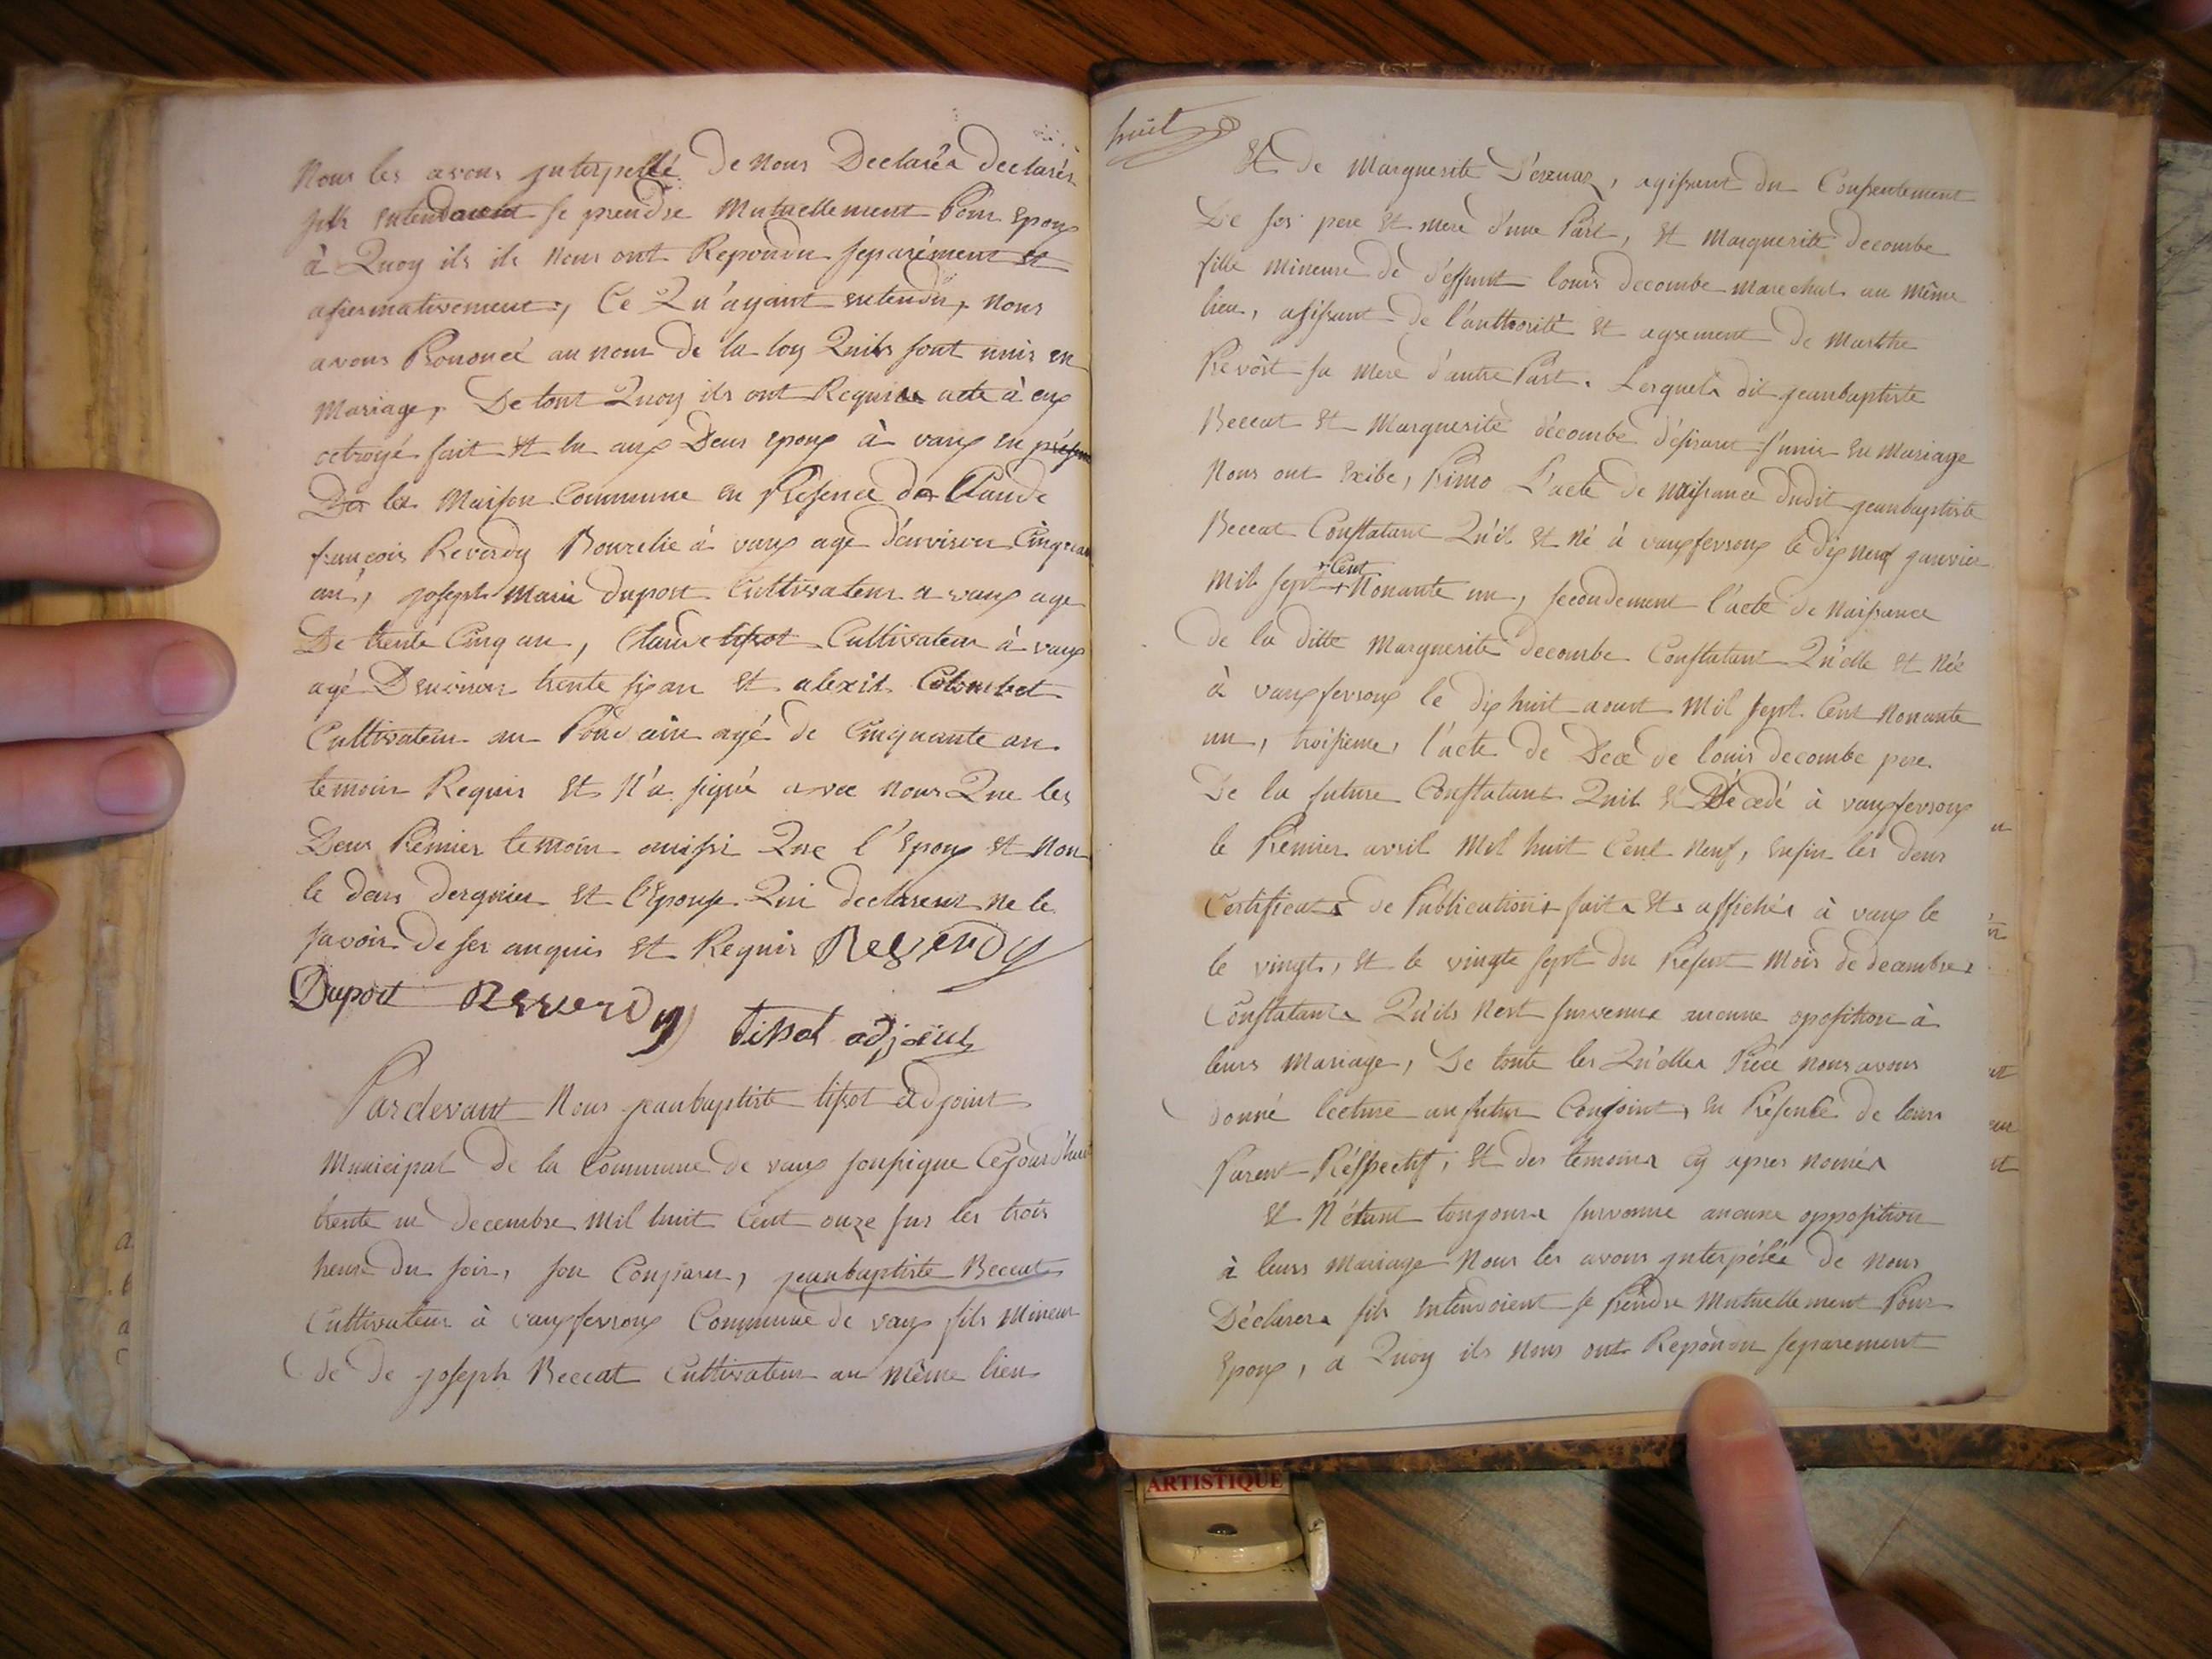 Nous les avons jnterpellé de nous Declarer declarés
sils entendoient se prendre Mutuellement Pour Epoux
à Quoy ils ils Nous ont Repondu separément et
afiermativement, Ce Qu'ayant entendu, nous
avons Prononcé au nom de la loy Quils sont unis en
Mariage, De tout Quoy ils ont Requis acte à eux
octroyé fait et lu aux Deux epoux à vaux en
la Maison Commune en Présence de Claude
françois Reverdy Bourelié à vaux agé d'environ Cinquante
an, joseph Marie dupont Cultivateur a vaux age
De trente Cinq an, Claude tissot Cultivateur à vaux
agé Denviron trente six an et alexis Colombet
Cultivateur au agé de Cinquante an
temoin Requis et N'a signé avec nous Que les
Deux Premier temoin ainssi Que l'Epoux et Non
le deux dergnier et l'Epouse Qui declarent ne le
savoir de ser anquis et Requis Reverdy
Dupont Reverdy tissot adjoint
Pardevant Nous jeanbaptiste tissot Adjoint
Municipal de la Commune de vaux soussigne Cejourd'hui
trente un decembre Mil huit Cent onze sur les trois
heure du soir, son Comparu, jeanbaptiste Beccat
Cultivateur à vauxfevroux Commune de vaux fils Mineur
de de joseph Beccat Cultivateur au Même lieu
huit
Et de Marguerite, agissant du Consentement
De ses pere et mere d'une Part, et Marguerite decombe
fille Mineure de deffunt louis decombe marechal au même
lieu, agissant de l'authorité et agrement de Marthe
Prevôst sa Mere d'autre Part. Lesquels dit jeanbaptiste
Beccat et Marguerite decombe désirant s'unir en Mariage
Nous ont Exibe, Primo L'acte de Naissance dudit jeanbaptiste
Beccat Constatant Qu'il et Né à vauxfevroux le dix neuf janvier
+ Cent
Mil sept + Nonante un, secondement l'acte de Naissance
de la ditte Marguerite decombe Constatant Qu'elle et Née
à vauxfevroux le dix huit aoust Mil sept Cent Nonante
un, troisieme, l'acte de Dece de louis decombe pere
De la future Constatant Quil et Décedé à vauxfevroux
le Premier avril Mil huit Cent Neuf, enfin les deux
Certificats de Publications faits Et affichés à vaux le
le vingt, et le vingte sept du Présent Mois de decembre
Constatant Qu'ils n'est survenue aucune oposition à
leurs Mariage, De toute les Qu'elles Piece nous avons
donné lecture au futur Conjoint, en Présence de leurs
Parent Respectif, Et des temoins cy apres només
et N'étant toujours survenue aucune opposition
à leurs Mariage Nous les avons jnterpélés de nous
Déclarer sils entendoient se Prendre Mutuellement Pour
Epoux, a Quoy ils Nous ont Repondu separement
ARTISTIQUE